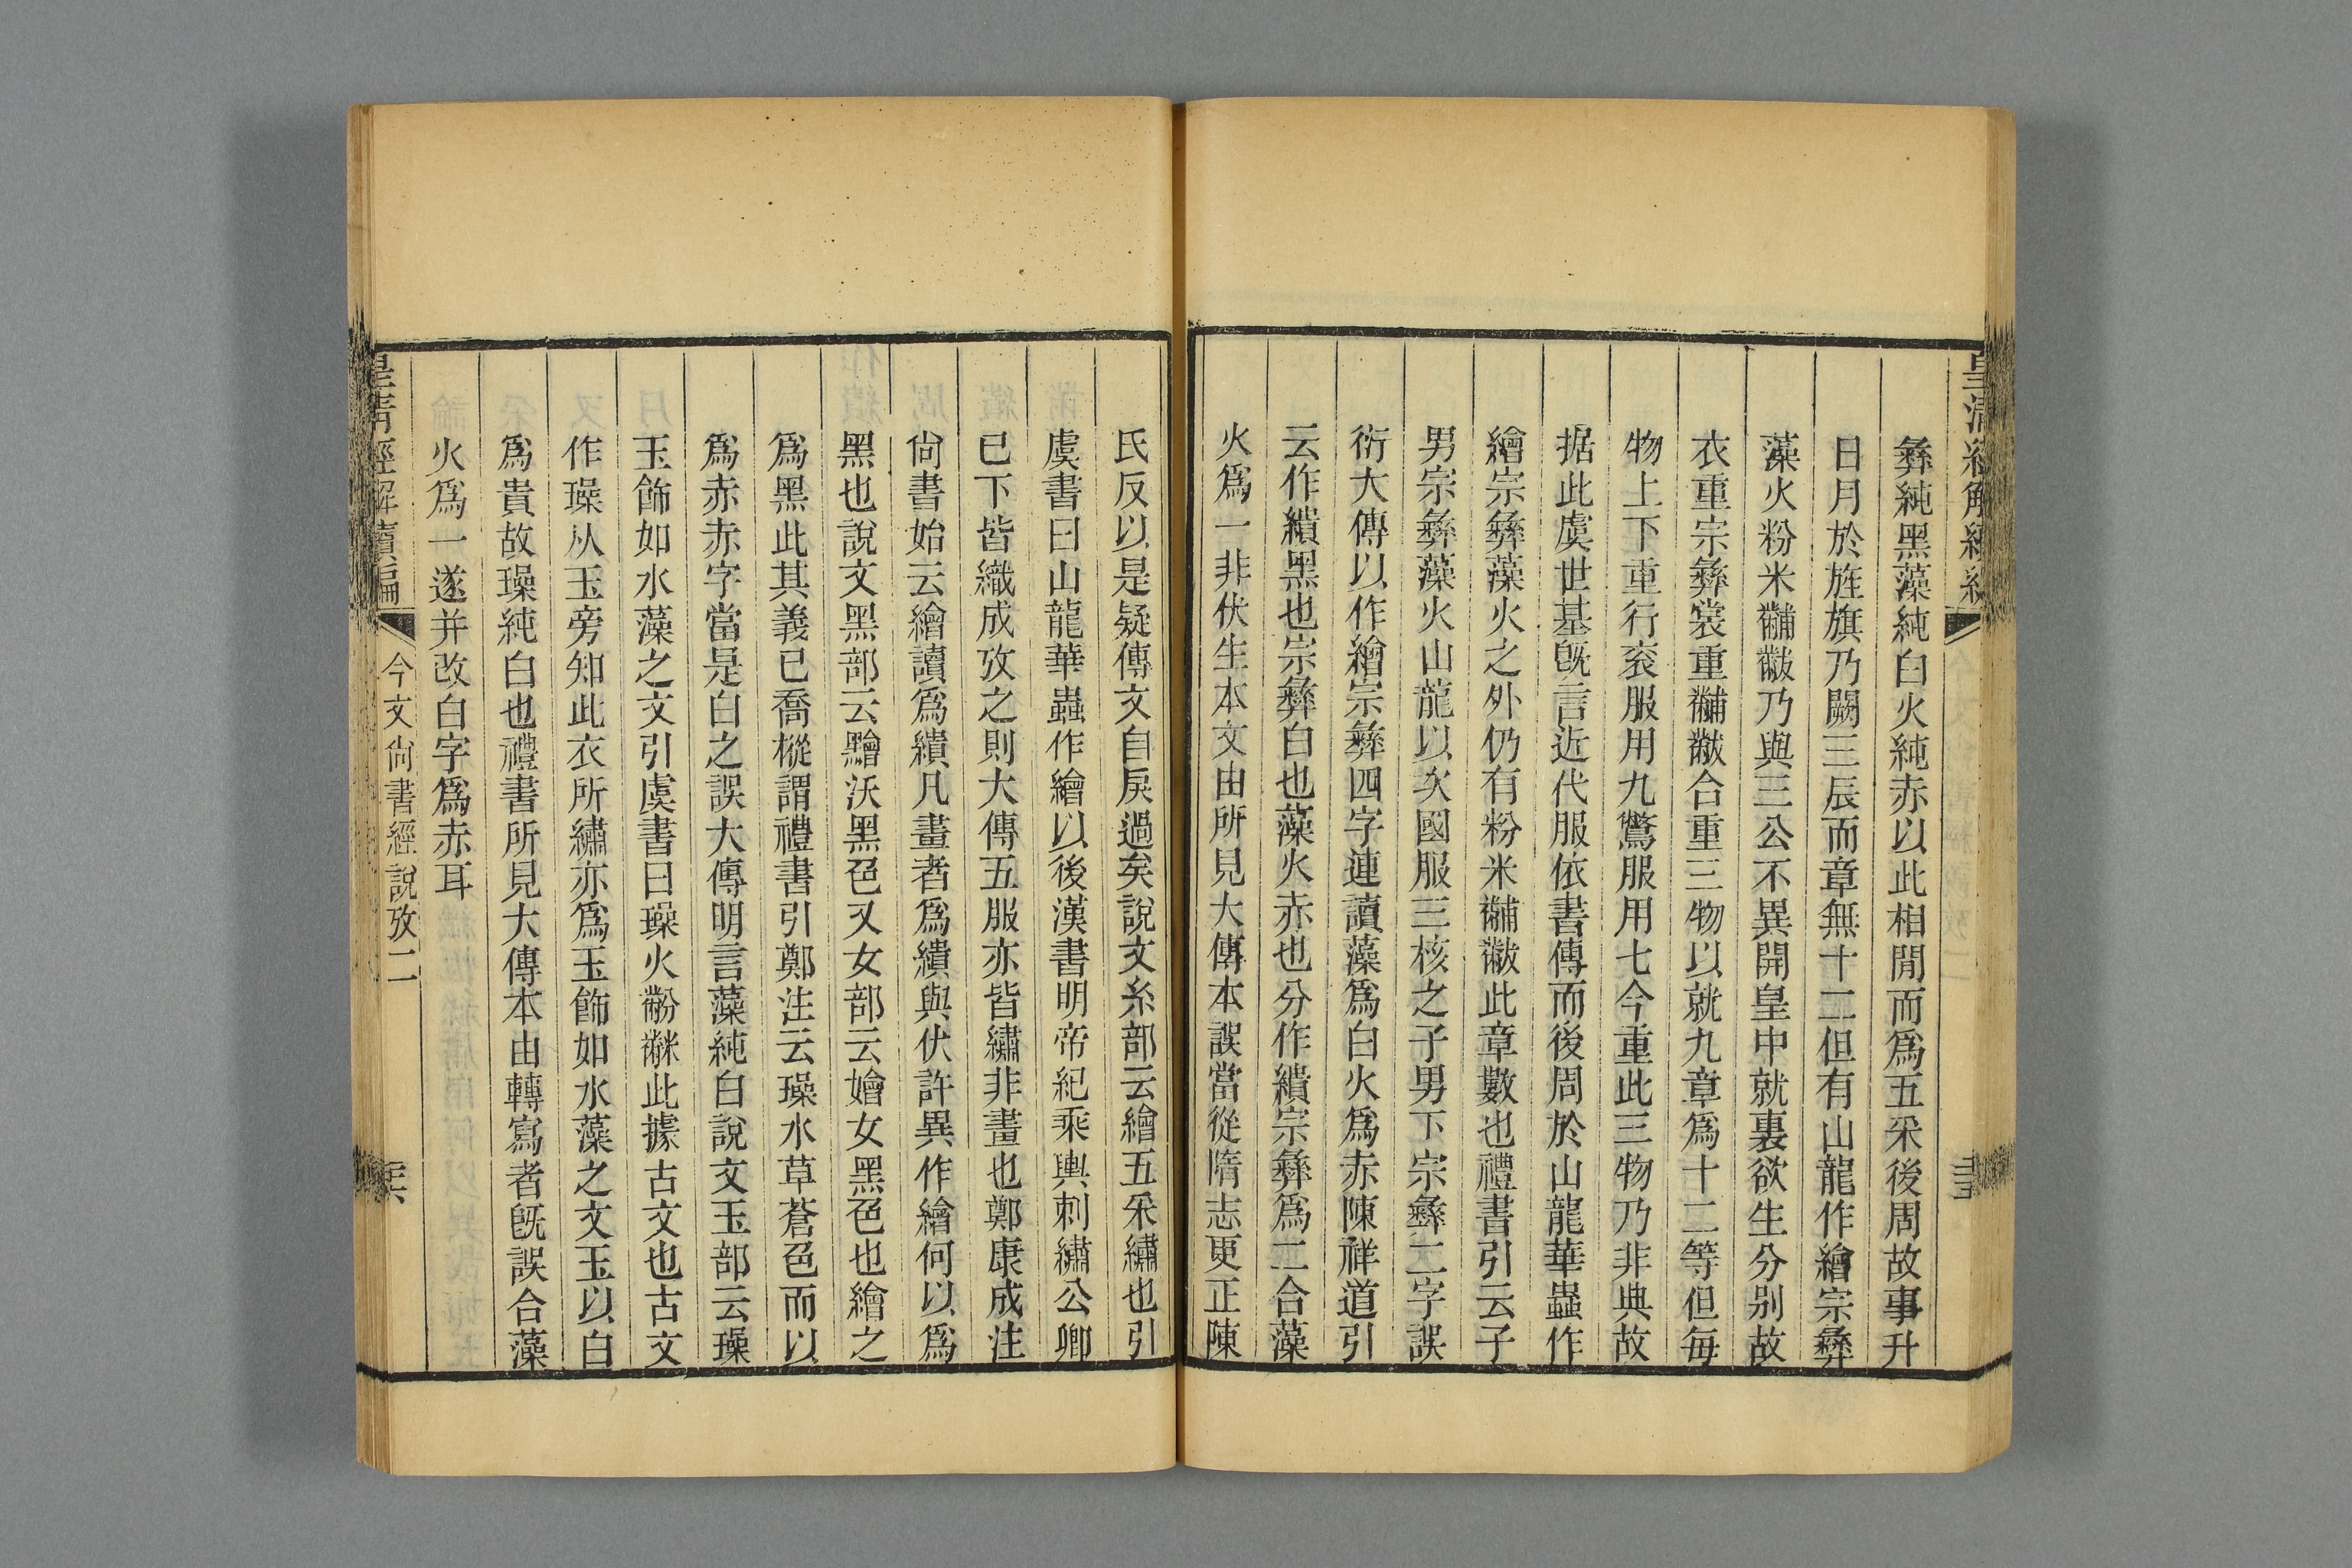 彝純黑藻純白火純赤以此相閒而爲五采後周故事升
日月於旌旗乃闕三辰而章無十二但有山龍作繪宗彝
藻火粉米黼黻乃與三公不異開皇中就裏欲生分別故
衣重宗彝裳重黼黻合重三物以就九章爲十二等但每
物上下重行袞服用九鷩服用七今重此三物乃非典故
据此虞世基旣言近代服依書傳而後周於山龍華蟲作
繪宗彝藻火之外仍有粉米黼黻此章數也禮書引云子
男宗彝藻火山龍以次國服三核之子男下宗彝二字誤
衍大傳以作繪宗彝四字連讀藻爲白火爲赤陳祥道引
云作繢黑也宗彝白也藻火赤也分作繢宗彝爲二合藻
火爲一非伏生本文由所見大傳本誤當從隋志更正陳
氏反以是疑傳文自戾過矣說文糸部云繪五采繡也引
虞書曰山龍華蟲作繪以後漢書明帝紀乘輿刺繡公卿
已下皆織成攷之則大傳五服亦皆繡非畫也鄭康成注
尙書始云繪讀爲繢凡畫者爲繢與伏許異作繪何以爲
黑也說文黑部云黵沃黑色又女部云嬒女黑色也繪之
爲黑此其義已喬樅謂禮書引鄭注云璪水草蒼色而以
爲赤赤字當是白之誤大傳明言藻純白說文玉部云璪
玉飾如水藻之文引虞書曰璪火黺𪓋此據古文也古文
作璪从玉旁知此衣所繡亦爲玉飾如水藻之文玉以白
爲貴故璪純白也禮書所見大傳本由轉寫者旣誤合藻
火爲一遂幷改白字爲赤耳
皇淸經解續編
今文尙書經說攷二